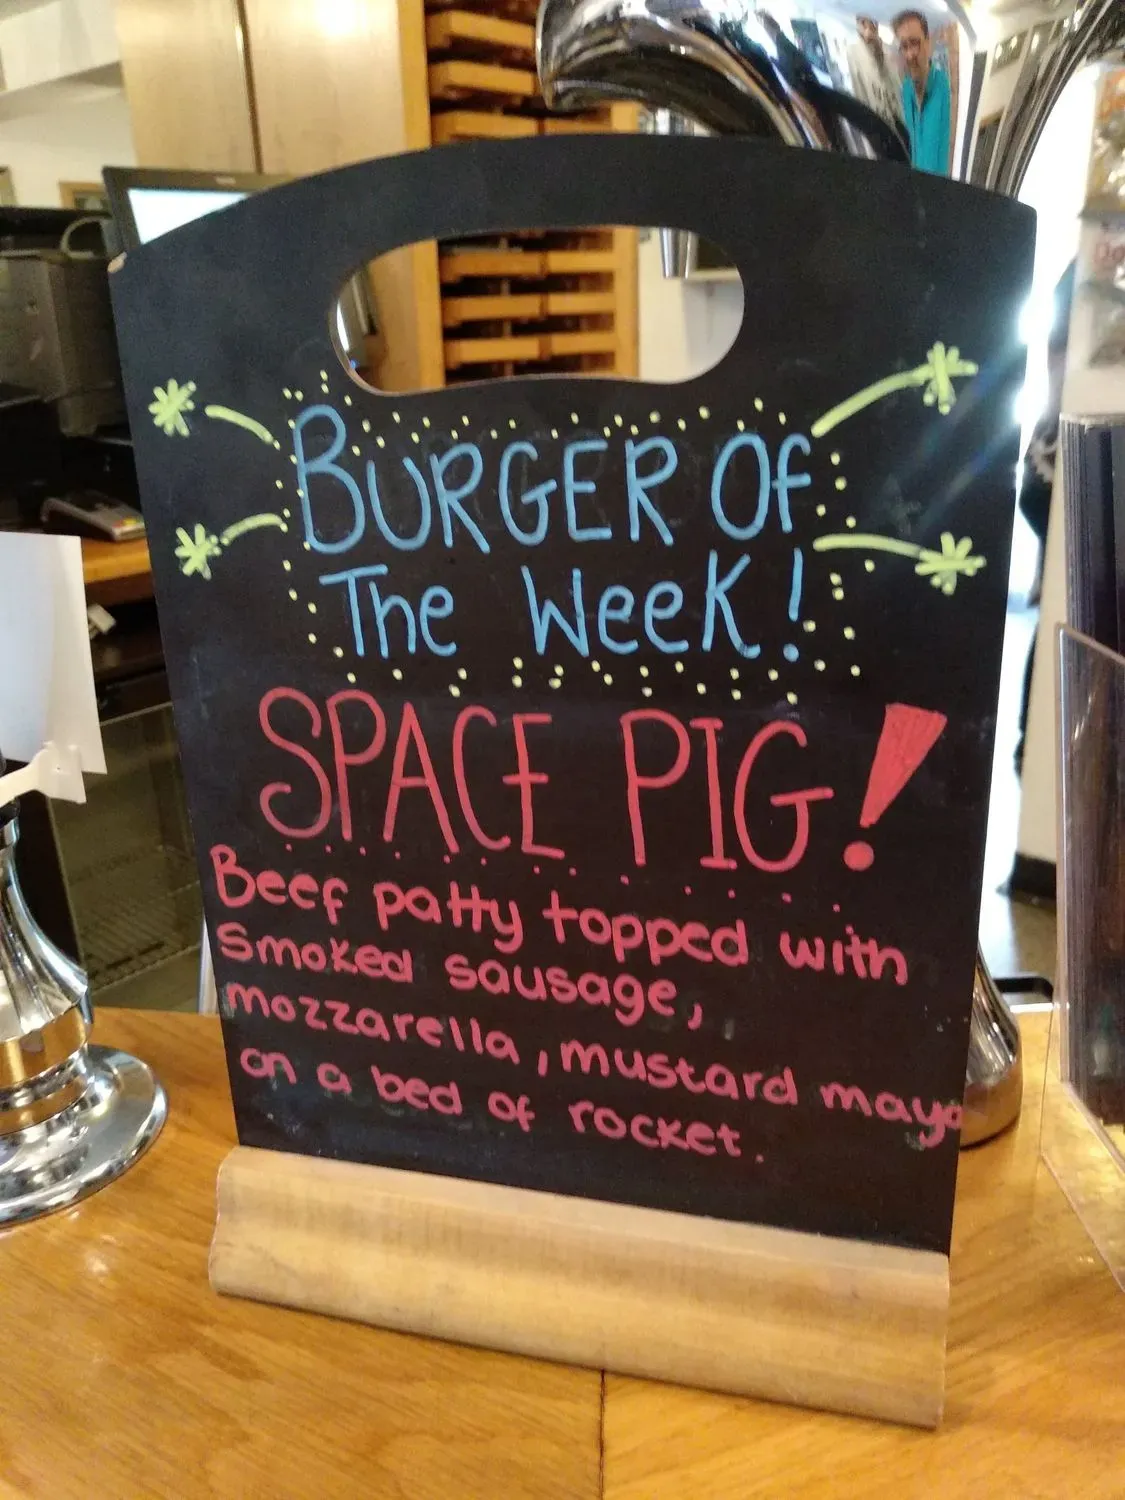 BURGER OF
The Week!
SPACE PIG!
Beef patty topped with
Smoked sausage,
mozzarella, mustard mayo
on a bed of rocket.